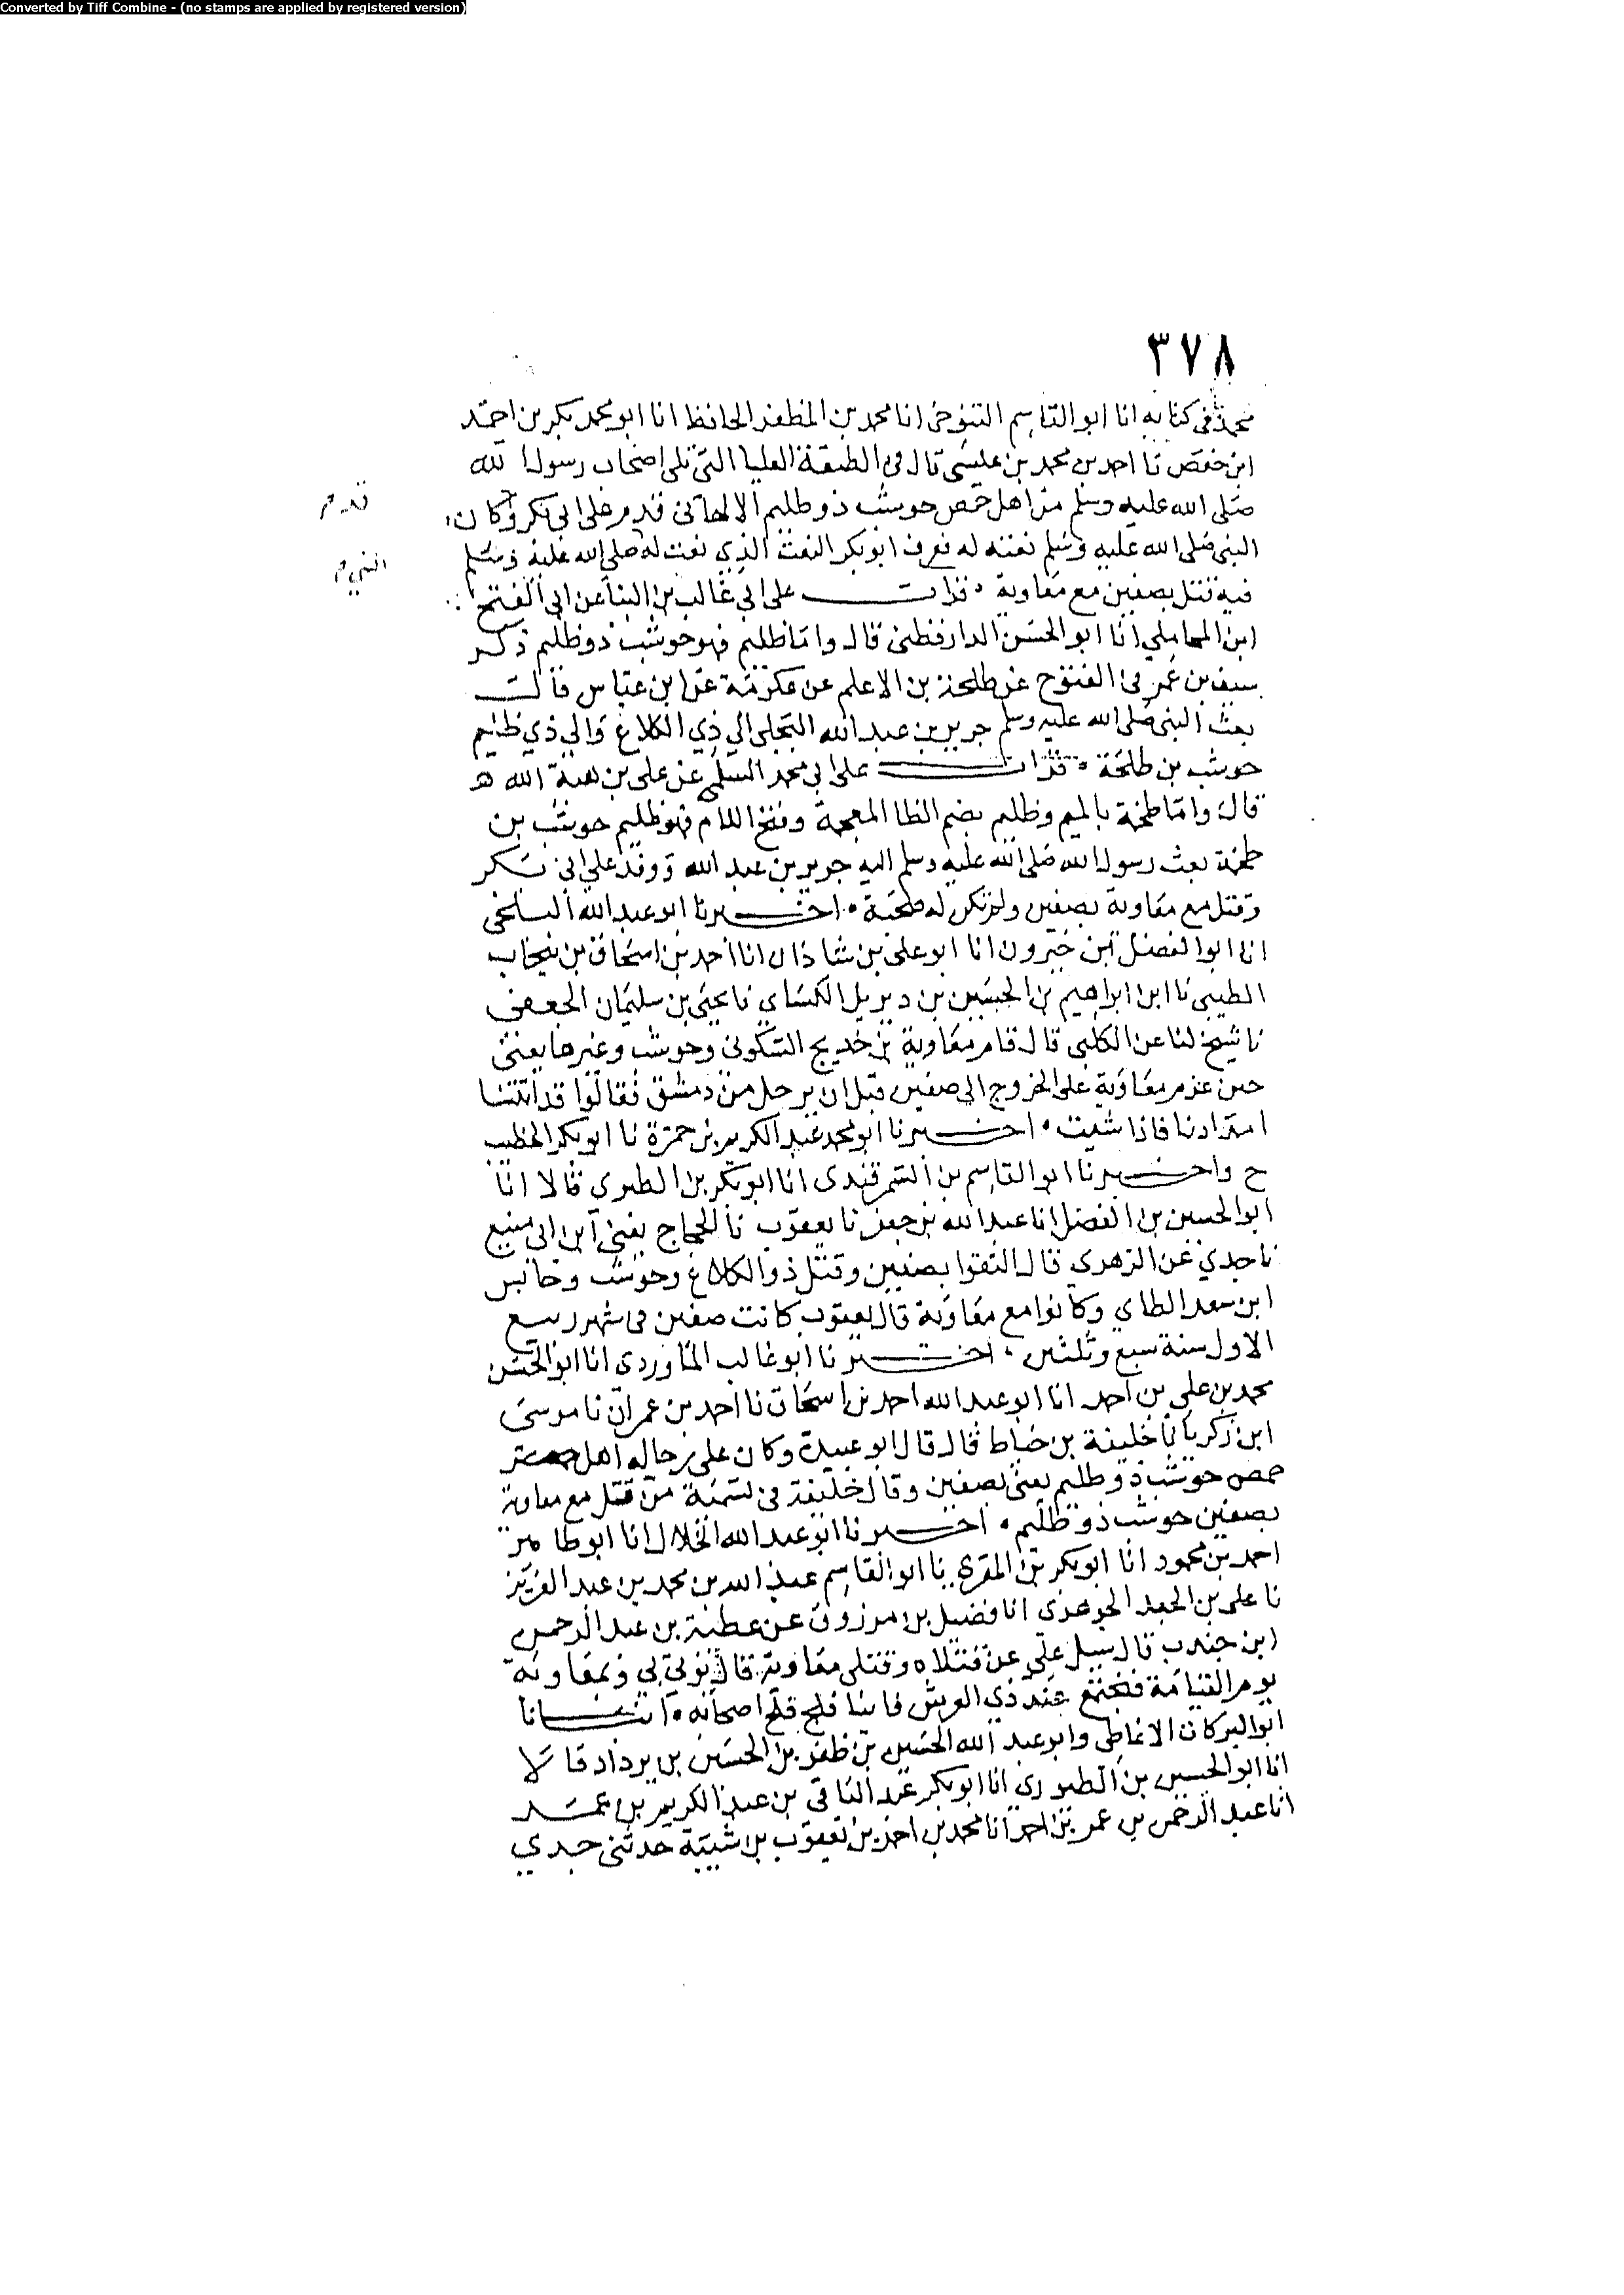 Converted by Tiff Combine - (no stamps are applied by registered version)
٣٧٨
محمد في كتابه انا ابو القاسم التنوخي انا محمد بن المظفر الحافظ انا ابو محمد بكر بن احمد
ابن حفص نا احمد بن محمد بن عيسى قال في الطبقة العليا التي تلي اصحاب رسول الله
صلى الله عليه وسلم من اهل حمص حوشب ذو ظليم الالهاني قدم على ابي بكر وكان
قدم
النبي صلى الله عليه وسلم نعته له فعرف ابو بكر النعت الذي نعت له صلى الله عليه وسلم
النبي
فيه قتل بصفين مع معاوية قرات على ابي غالب بن البنا عن ابي الفتح
ابن المحاملي انا ابو الحسن الدارقطني قال واما ظليم فهو حوشب ذو ظليم ذكر
سيف بن عمر في الفتوح عن طلحة بن الاعلم عن عكرمة عن ابن عباس قال
بعث النبي صلى الله عليه وسلم جرير بن عبد الله البجلي الى ذي الكلاع والى ذي ظليم
حوشب بن طلحة قرات على ابي محمد السلمي عن علي بن هبة الله
قال واما طخمة بالميم وظليم بضم الظا المعجمة وفتح اللام فهو ظليم حوشب بن
طخمة بعث رسول الله صلى الله عليه وسلم اليه جرير بن عبد الله ووفد على ابي بكر
وقتل مع معاوية بصفين ولم تكن له صحبة اخبرنا ابو عبد الله البلخي
انا ابو الفضل بن خيرون انا ابو علي بن شاذان انا احمد بن اسحاق بن نيخاب
الطيبي نا ابن ابراهيم بن الحسين بن ديزيل الكساي نا يحيى بن سليمان الجعفي
نا شيخ لنا عن الكلبي قال قام معاوية بن خديج السكوني وحوشب وغيرها يعني
حين عزم معاوية على الخروج الى صفين قبل ان يرحل من دمشق فقالوا قد اتتنا
امدادنا فاذا شيت اخبرنا ابو محمد عبد الكريم بن حمزة نا ابو بكر الخطيب
ح واخبرنا ابو القاسم بن السمرقندي انا ابو بكر بن الطبري قالا انا
ابو الحسين بن الفضل انا عبد الله بن جعفر نا يعقوب نا الحجاج يعني ابن ابي منيع
نا جدي عن الزهري قال التقوا بصفين وقتل ذو الكلاع وحوشب وحابس
ابن سعد الطاي وكانوا مع معاوية قال يعقوب كانت صفين في شهر ربيع
الاول سنة سبع وثلثين اخبرنا ابو غالب الماوردي انا ابو الحسن
محمد بن علي بن احمد انا ابو عبد الله احمد بن اسحاق نا احمد بن عمران نا موسى
ابن زكريا نا خليفة بن خياط قال قال ابو عبيدة وكان على رجاله اهل
حمص حوشب ذو ظليم يعني بصفين وقال خليفة في تسمية من قتل مع معاوية
بصفين حوشب ذو ظليم اخبرنا ابو عبد الله الخلال انا ابو طاهر
احمد بن محمود انا ابو بكر بن المقري نا ابو القاسم عبد الله بن محمد بن عبد العزيز
نا علي بن الجعد الجوهري انا فضيل بن مرزوق عن عطية بن عبد الرحمن
ابن جندب قال سيل علي عن قتلاه وقتلى معاوية قال يوتى بي وبمعاوية
يوم القيامة فنجتمع عند ذي العرش فاينا فلج فلج اصحابه انبانا
ابو البركات الانماطي وابو عبد الله الحسين بن ظفر بن الحسين بن يزداد قالا
انا ابو الحسين بن الطيوري انا ابو بكر عبد الباقي بن عبد الكريم بن عمر
انا عبد الرحمن بن عمر بن احمد انا محمد بن احمد بن يعقوب بن شيبة حدثني جدي